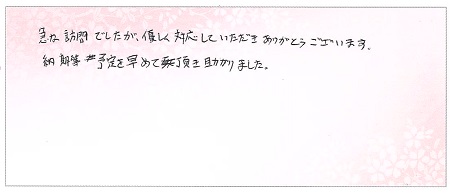 急な訪問でしたが、優しく対応していただきありがとうございます。
納期等予定を早めて頂き助かりました。